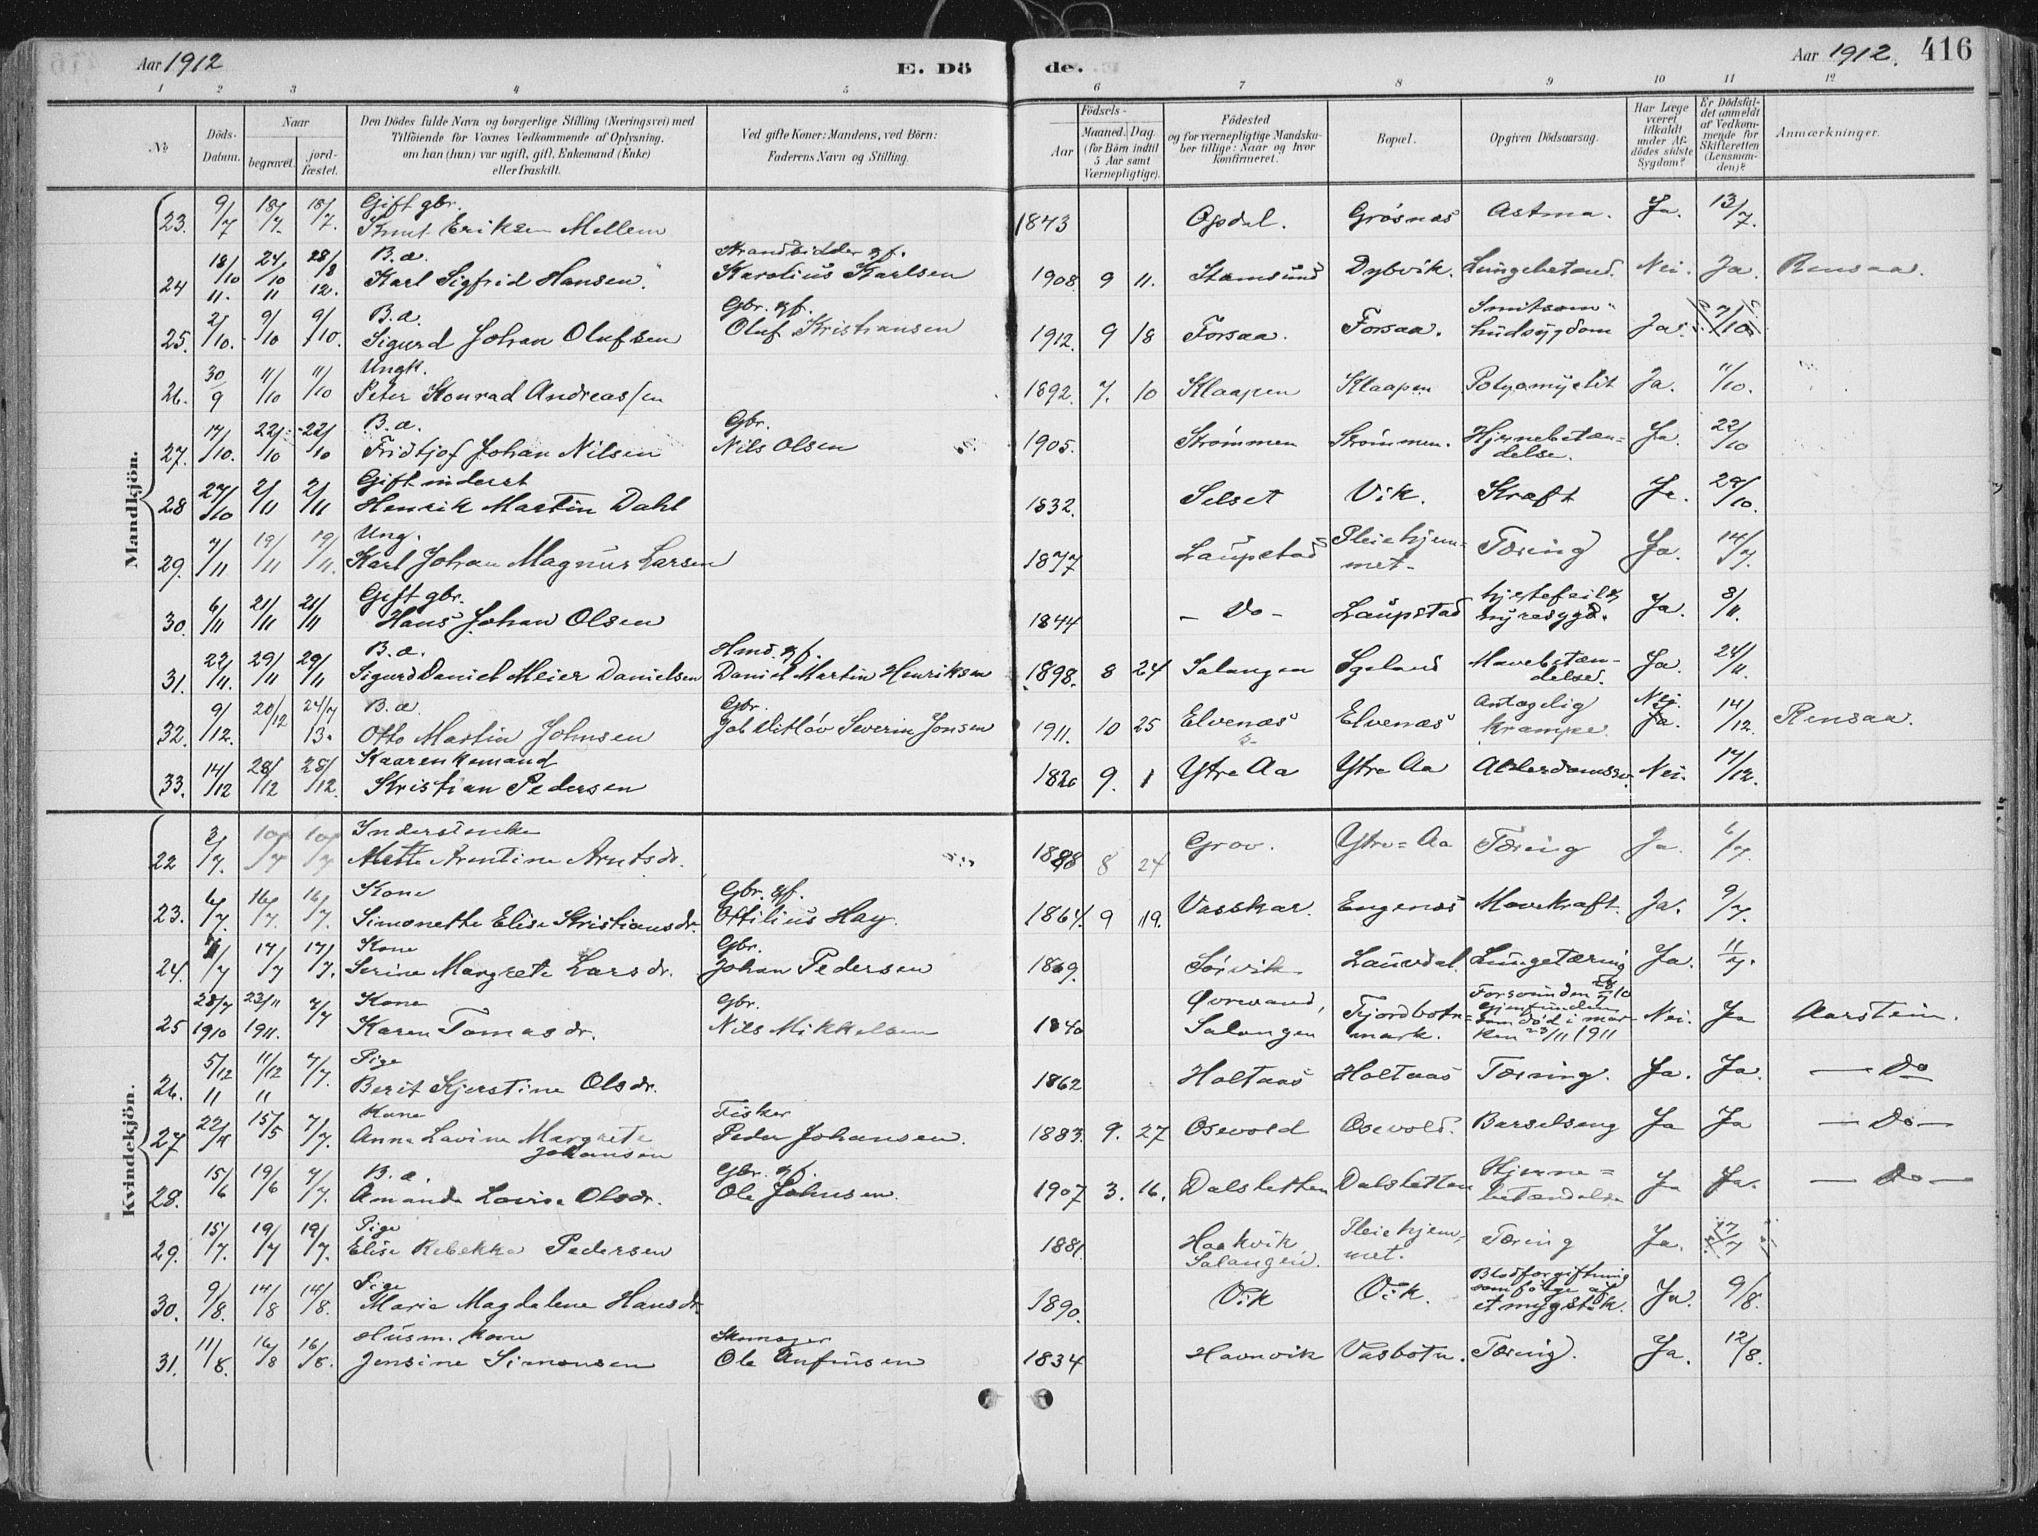 Aar 1912
E. Dö
de.
Aar 1912.
416
1 2 3 4 5 6 7 8 9 10 11 12
No
Döds-
Datum.
Naar
begravet.
jord-
fæstet.
Den Dödes fulde Navn og borgerlige Stilling (Næringsvei) med
Tilföiende for Voxnes Vedkommende af Oplysning,
om han (hun) var ugift, gift, Enkemand (Enke)
eller fraskilt.
Ved gifte Koner: Mandens, ved Börn:
Faderens Navn og Stilling.
Födsels-
Aar
Maaned.
Dag.
(for Börn indtil
5 Aar samt
Værnepligtige).
Födested
og for værnepligtige Mandska-
ber tillige: Naar og hvor
konfirmeret.
Bopæl.
Opgiven Dödsaarsag.
Har Læge
været
tilkaldt
under Af-
dödes sidste
Sygdom?
Er Dödsfal-
det anmeldt
af Vedkom-
mende for
Skifteretten
(Lensman-
den)?
Anmærkninger.
Mandkjön.
23. 9/7 18/7 18/7. Gift gbr.
Knut Eriksen Mellem 1843 Opdal. Grøsnæs Astma. Ja. 13/7.
24 18/10 11. 24/10 11 28/8 12. B.a.
Karl Sigfrid Hansen. Strandsidder gf.
Karolius Karlsen 1908 9 11. Stamsund Dybvik. Lungebetænd. Nei. Ja. Rensaa.
25. 2/10. 9/10 9/10. B.a.
Sigurd Johan Olufsen Gbr. gf.
Oluf Kristiansen 1912. 9 18 Forsaa. Forsaa. Smitsom
hudsygdom Ja. 7/10
26. 30/9 11/10 11/10 Ungk.
Peter Konrad Andreassen 1892. 7. 10 Klaapen Klaapen Polyomyelit Ja. 11/10.
27. 17/10. 22/10 22/10 B.a.
Fridtjof Johan Nilsen Gbr.
Nils Olsen 1905. Strømmen Strømmen. Hjernebetæn-
delse. Ja. 22/10
28 27/10 2/11 2/11 Gift inderst
Henrik Martin Dahl 1832. Selset Vik. Kræft Ja. 29/10.
29. 7/11 19/11 19/11. Ung.
Karl Johan Magnus Larsen 1877 Laupstad Pleiehjem-
met. Tæring Ja. 14/7.
30. 6/11 21/11 21/11 Gift gbr.
Hans Johan Olsen 1844 - Do - Laupstad hjertefeil og
nyresygd. Ja. 8/11.
31. 22/11. 29/11 29/11 B.a.
Sigurd Daniel Meier Danielsen Hmd. gf.
Daniel Martin Henriksen 1898. 8 24 Salangen Igeland Mavebetæn-
delse. Ja. 24/11.
32. 9/12. 20/12 24/7 13. B.a.
Otto Martin Johnsen Gbr.
Jab Detløv Severin Jonsen 1911. 10 25 Elvenæs Elvenæs Antagelig
krampe. Nej.
Ja. 14/12 Rensaa.
33. 14/12 28/12 28/12. Kaarenkemand
Kristian Pedersen 1826 9. 1 Ytre Aa Ytre Aa Alderdomssv. Nei. 17/12.
Kvindekjön.
22 2/7. 10/7 10/7 Inderstenke
Mette Arntine Arntsdr. 1888 8 24 Grov. Ytre-Aa Tæring Ja. 6/7.
23. 6/7. 16/7. 16/7. Kone
Simonette Elise Kristiansdr. Gbr. gf.
Ottilius Hay. 1864. 9 19. Vasskar. Engenæs Mavekræft. Ja. 9/7.
24. 17/7 17/7. Kone
Serine Margrete Larsdr. Gbr.
Johan Pedersen 1869. Sørvik Lauvdal. Lungetæring Ja. 11/7.
25 28/7 1910 23/11 1911. 7/7 Kone
Karen Tomasdr. Gbr.
Nils Mikkelsen 1840 Øvrevand,
Salangen Fjordbotn-
mark. Forsvunden 28/7 10
gjenfunden
som død i mar-
ken 23/11 1911 Nei. Ja Aarstein.
26. 5/12 11 11/12 11 7/7. Pige
Berit Kjerstine Olsdr. 1862 Holtaas Holtaas Tæring. Ja. Ja. - Do
27 22/4 15/5 7/7. Kone
Anna Lovine Margrete
Johansen Fisker
Peder Johansen. 1883. 9. 27 Osevold Osevold. Barselseng Ja Ja - Do -
28. 15/6 19/6 7/7. B.a.
Amanda Lovise Olsdr. Gbr. gf.
Ole Johnsen. 1907 3. 16. Dalsletten Dalsletten Hjerne-
betændelse Ja Ja. - Do -
29. 15/7. 19/7 19/7. Pige
Elise Rebekka Pedersen 1881. Haakvik
Salangen. Pleiehjem-
met. Tæring Ja. 17/7
30. 9/8. 14/8 14/8. Pige
Marie Magdalene Hansdr. 1890. Vik Vik. Blodforgiftning
som følge af
et mygstik. Ja. 9/8.
31. 11/8. 16/8 16/8. Husm. kone
Jensine Simonsen Skomager
Ole Anfinsen 1834 Havnvik Vasbotn. Tæring. Ja. 12/8.